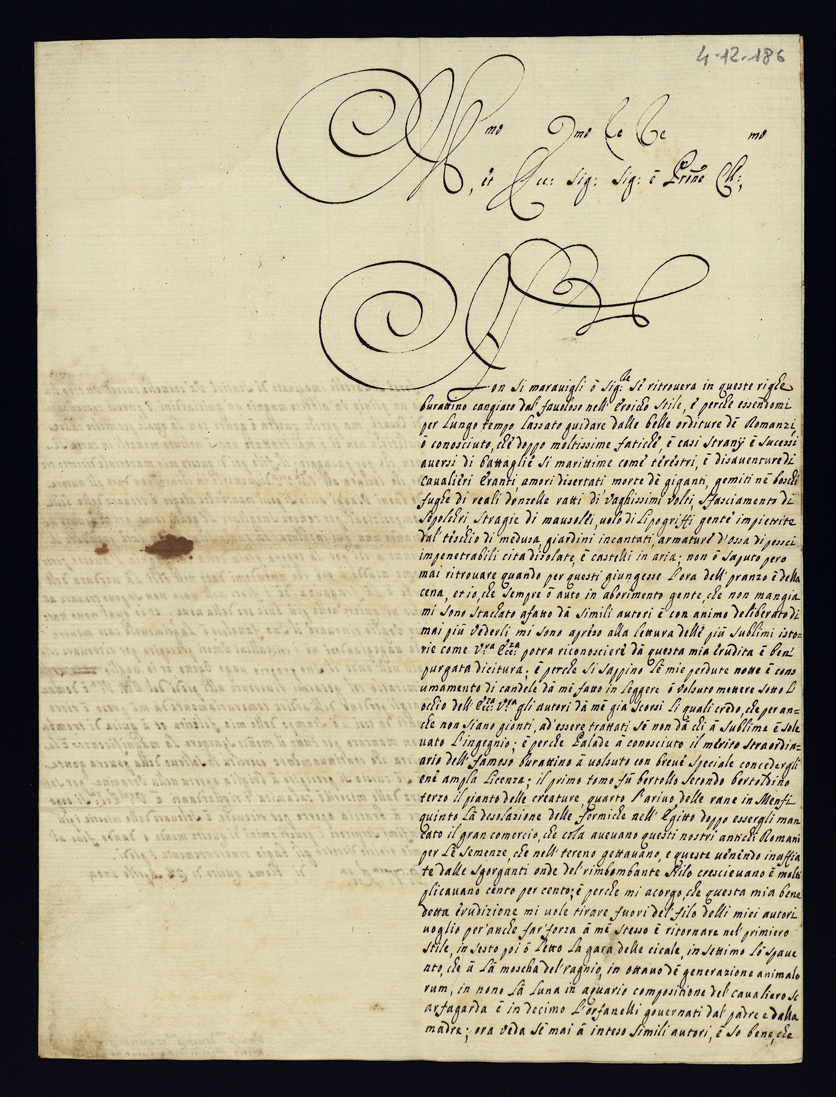 4-12-186
mo Dmo Le Be mo
, et Ecc: Sig: Sig: è Prone Cll:,
Non si maravigli ò Sig:re se ritrovera in queste righe
burattino cangiato dal favoloso nell'Eroicho stile, è perche essendomi
per lungo tempo lassato guidare dalle belle orditure dè Romanzi,
ò conosciuto, chè doppo moltissime fatiche, è casi stranÿ è sucessi
aversi di battaglie si marittime comè terèstri, è disaventure di
Cavalièri èranti amori disertati morte dè giganti, gemiti nè boschi
fughe di reali donzelle ratti di vaghissimi volti, sfasciamento di
sepolchri, stragie di mausolei, volo di Lipogriffi gentè impietrite
dal tèschio di medusa, giardini incantati, armature d'ossa di pesci
impenetrabili cità disolate, è castelli in aria; non ò saputo però
mai ritrovare quando per questi giungesse l'ora dell'pranzo è della
cena, et io, che sempre ò auto in aborimento gente, che non mangia
mi sono staccato afatto dà simili autori è con animo deliberato di
mai più vèderli mi sono aprèso alla lettura dellè più sublimi isto=
rie come V:ra Ecc:za potra riconoscierè dà questa mia èrudita è ben
purgata dicitura; è perchè si sappino lè mie perdute notte è cons
umamento di candele dà mè fatto in leggere ò voluto mettere sotto l'
ochio dell'Ecc:za V:ra gli autori dà mè già scorsi li quali crèdo, che per an=
che non siano gionti, ad essere trattati sè non dà chi à sublime è sole
vato l'ingegnio; è perchè Palade à conosciuto il mèrito straordin=
ario dell'famoso burattino à voluto con brevè speciale concedergli
enè ampla licenza; il primo tomo fù bertollo secondo bertoldino
terzo il pianto delle creature, quarto l'arivo delle rane in Menfi
quinto là disolazione delle formiche nell'Egitto doppo essergli man
cato il gran comercio, che colà avevano questi nostri antichi Romani
per lè semenze, che nell'tereno gettavano, e queste vènèndo inaffia
te dalle sgorganti onde del'rimbombante Nilo crescievano è molti
plicavano cento per cento; è perchè mi acorgo, che questa mia bene
dotta èrudizione mi vole tirare fuori del'filo delli miei autori
voglio per'anche far'forza à mè stesso è ritornare nel'primiero
stile, in sesto poi ò letto la gara delle cicale, in settimo lò spave
nto, che à là moscha del'ragnio, in ottavo dè generazione animalo
rum, in nono là luna in aquario compositione del'cavaliero sc
artagarda è in decimo l'orfanelli governati dal'padre e dalla
madre; ora veda sè mai à inteso simili autori, è so bene, che